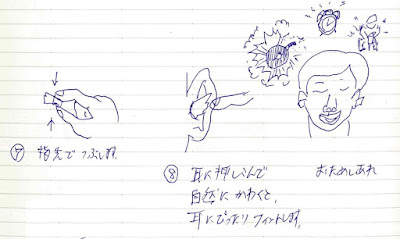 ⑦ 指先でつぶします。
⑧ 耳に押しこんで
自然にかわくと、
耳にぴったりフィットします。
おためしあれ